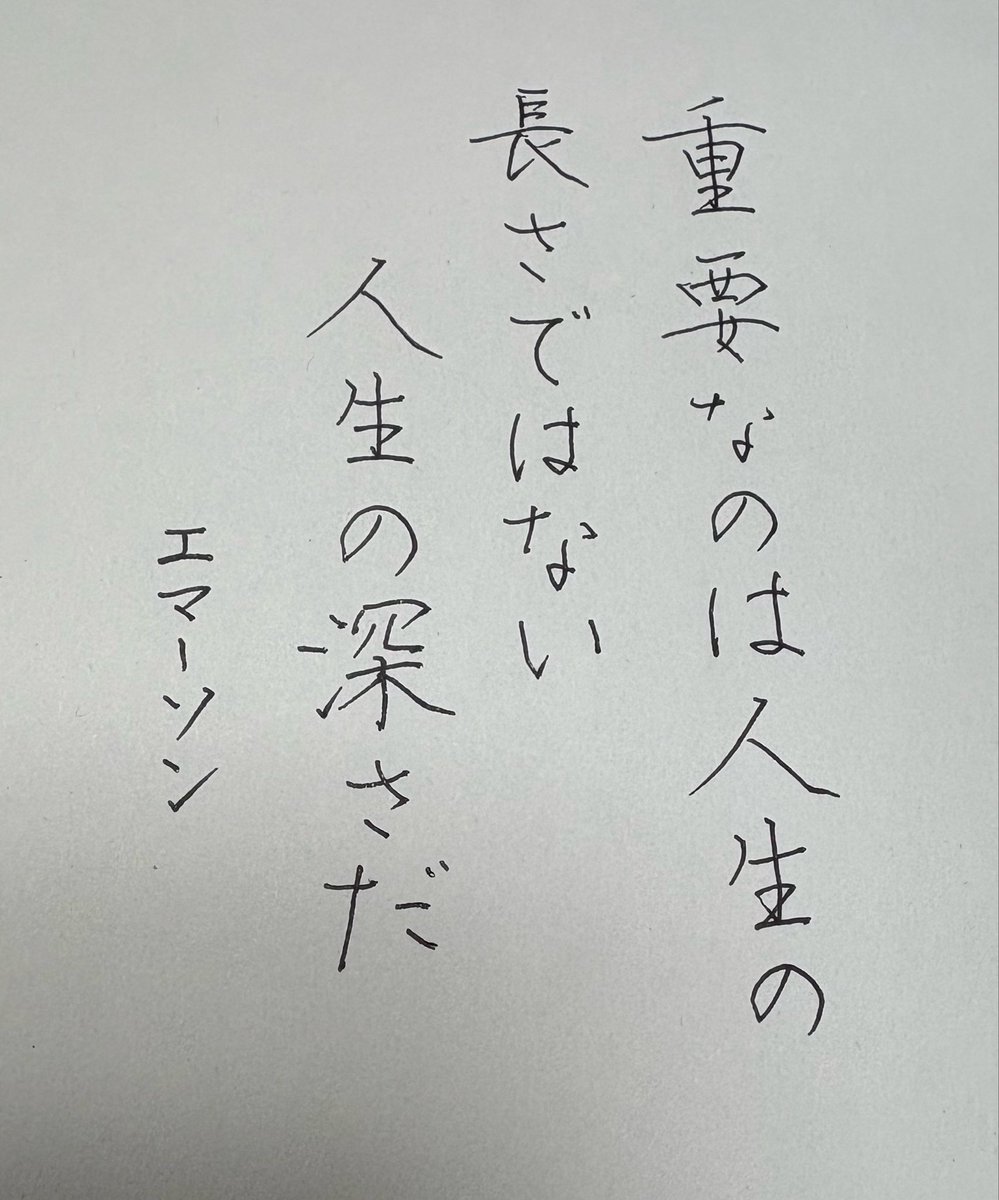 重要なのは人生の
長さではない
人生の深さだ
エマーソン